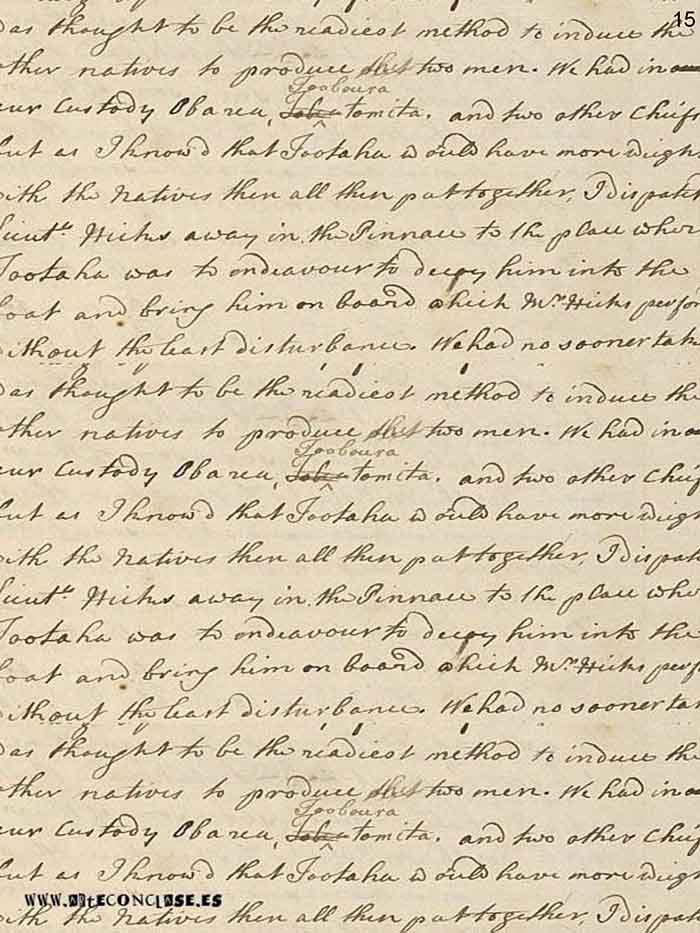 15
as thought to be the readiest method to induce the
ther natives to produce two men. We had in
Tooboura
ur Custody Obarea, tomita, and two other Chiefs
but as I know'd that Tootaha would have more weigh
with the Natives then all then put together, I dispatch
Lieutt Hicks away in the Pinnace to the place wher
Tootaha was to endeavour to decoy him into the
boat and bring him on board which Mr Hicks perfor
without the least disturbance. We had no sooner tak
as thought to be the readiest method to induce the
ther natives to produce two men. We had in
Tooboura
ur Custody Obarea, tomita, and two other Chief
but as I know'd that Tootaha would have more weigh
with the Natives then all then put together, I dispatc
Lieutt Hicks away in the Pinnace to the place whe
Tootaha was to endeavour to decoy him into the
boat and bring him on board which Mr Hicks perf
without the least disturbance. We had no sooner tak
as thought to be the readiest method to induce the
ther natives to produce two men. We had in
Tooboura
ur Custody Obarea, tomita, and two other Chief
but as I know'd that Tootaha would have more weigh
www.arteconclase.es
with the Natives then all then put together, I dispatc